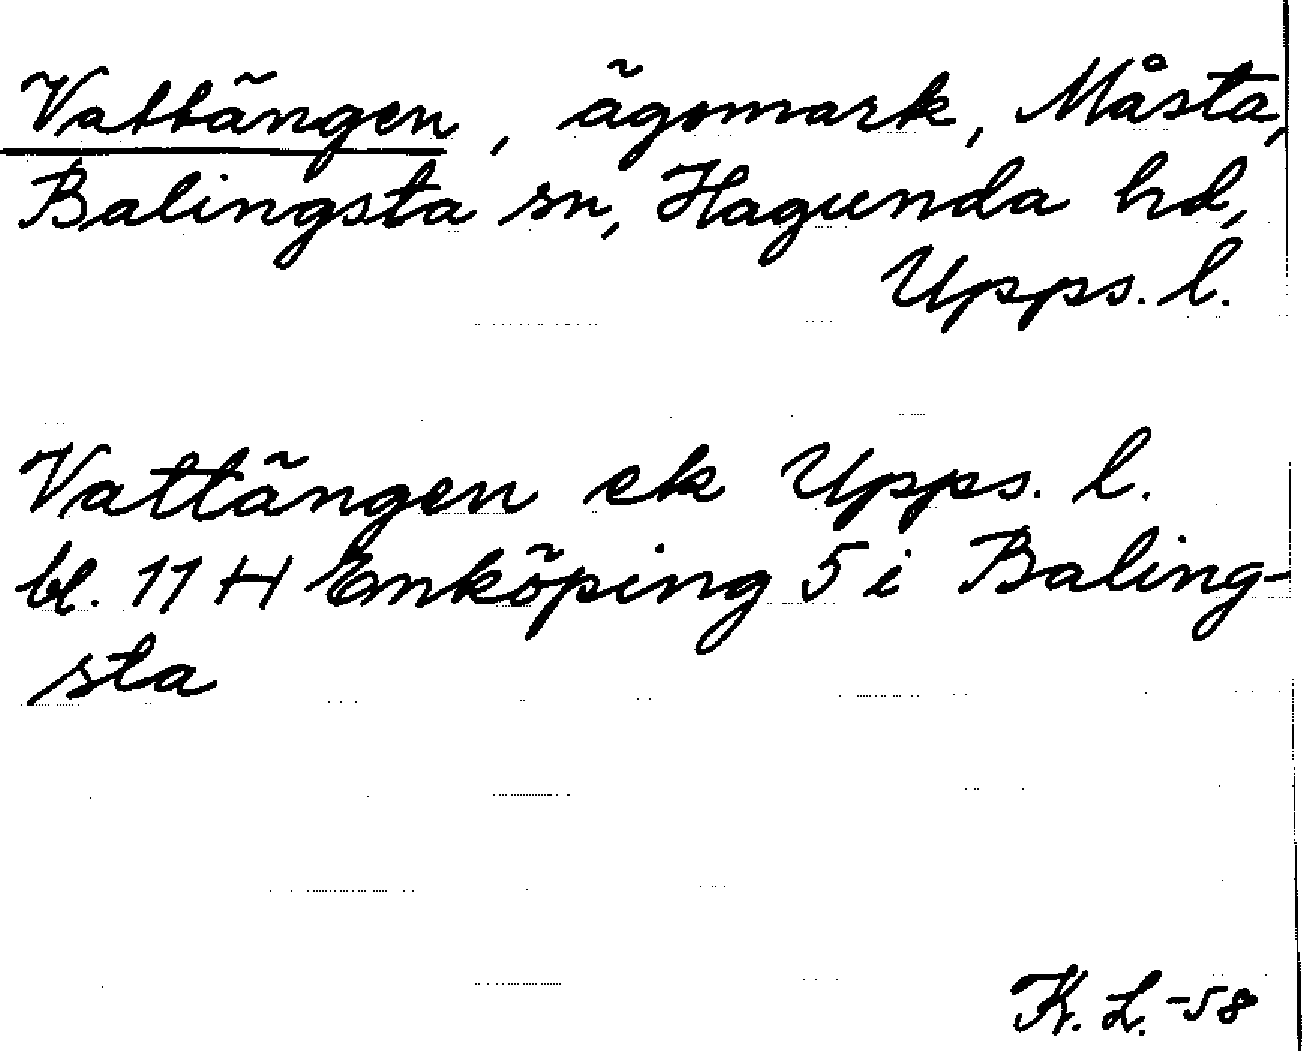 Vattängen, ägomark, Måsta,
Balingsta sn, Hagunda hd,
Upps. l.
Vattängen ek Upps. l.
bl. 11 H Enköping 5 i Baling-
sta
K. L. -58